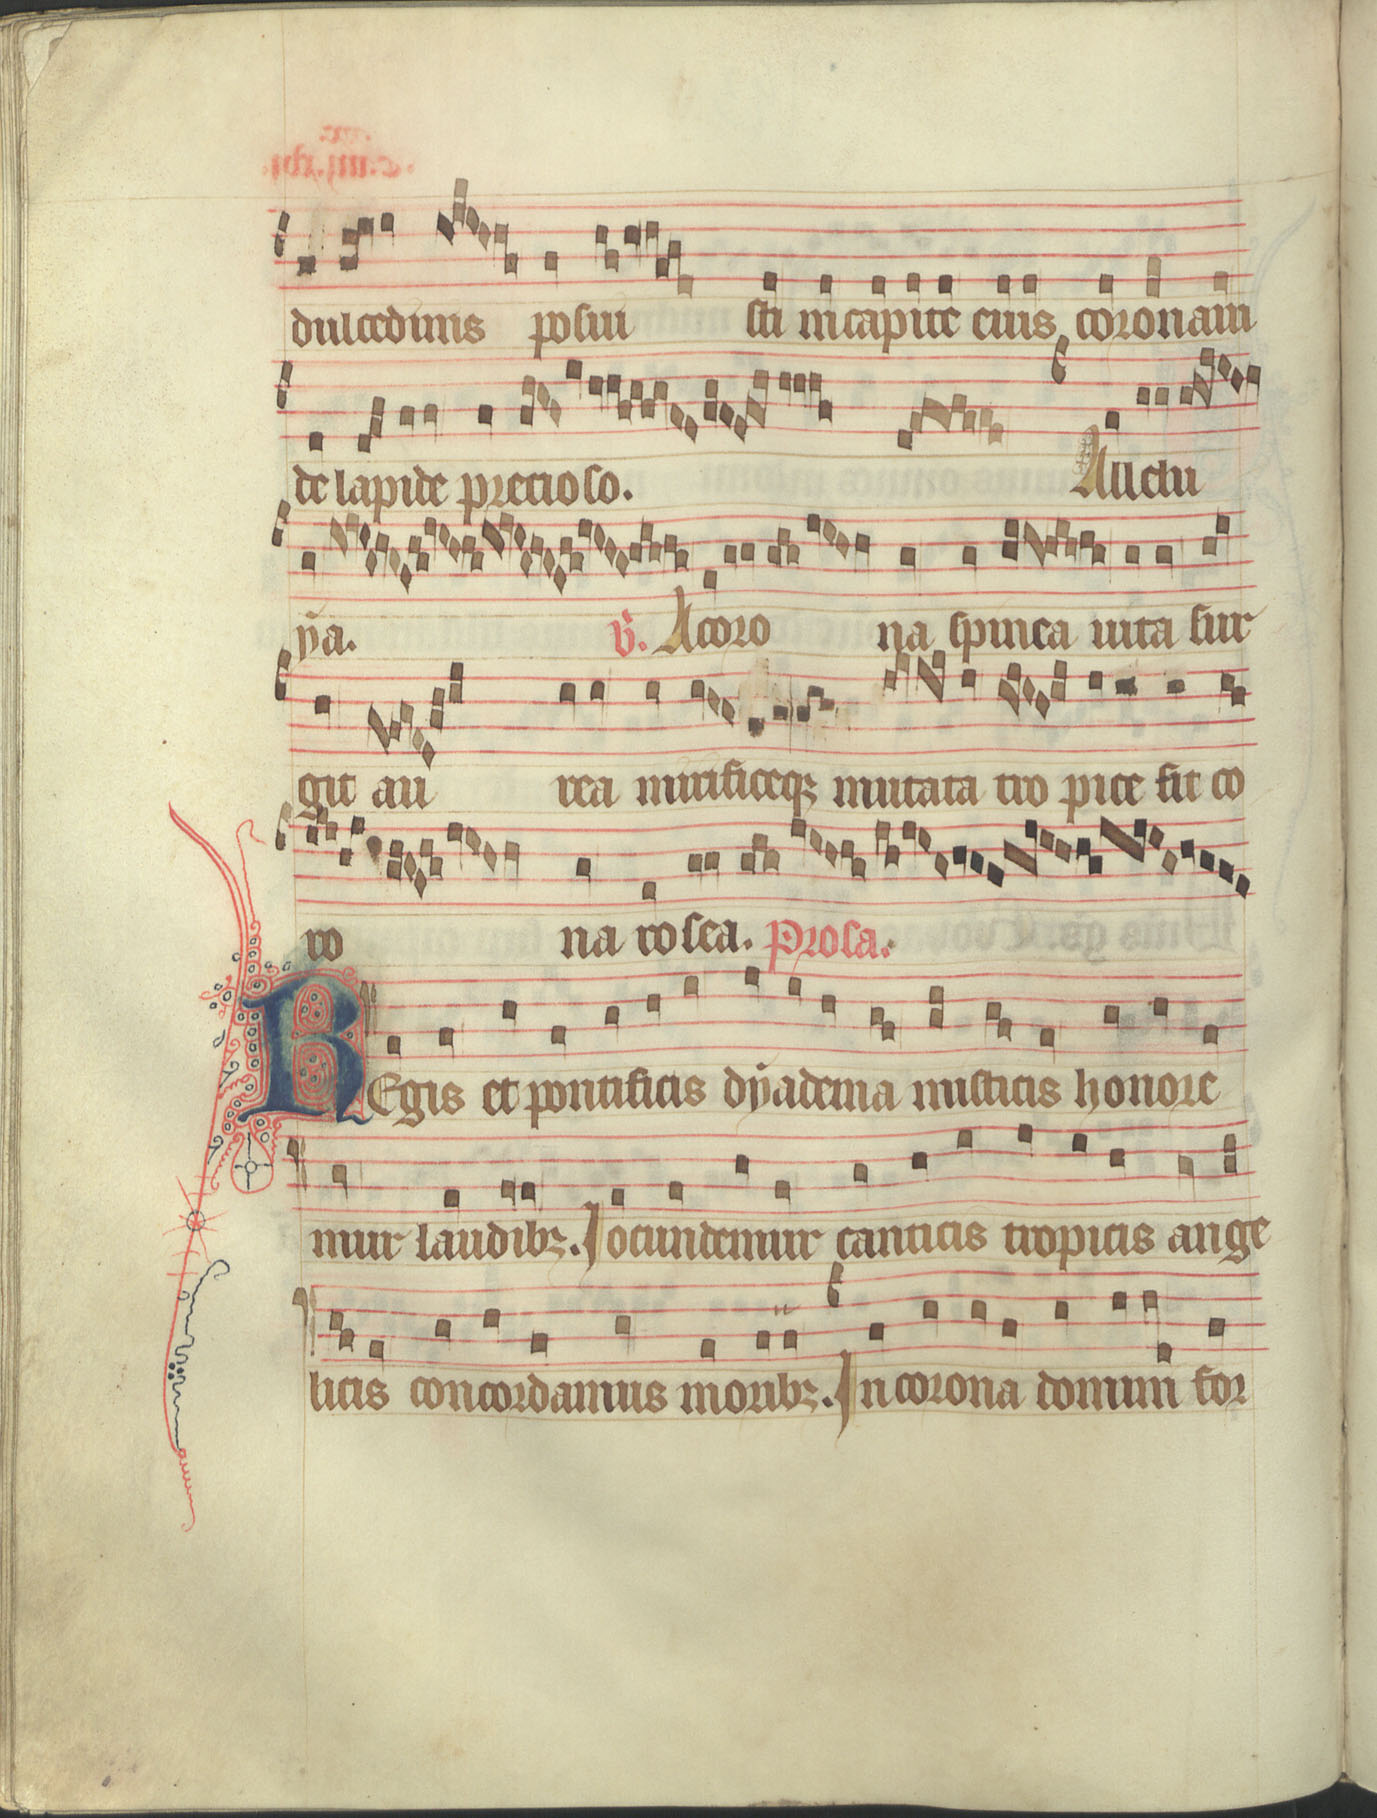 dulcedinis posui sti in capite eius coronam
de lapide precioso. Allelu
ÿa. V̄. A coro na spinea uita sur
git au rea mirificeqꝫ mutata tro pice fit co
ro na rosea. Prosa.
REgis et pontificis dÿadema misticis honore
mur laudibꝫ. Iocundemur canticis tropicis ange
licis concordamus moribꝫ. In corona domini for